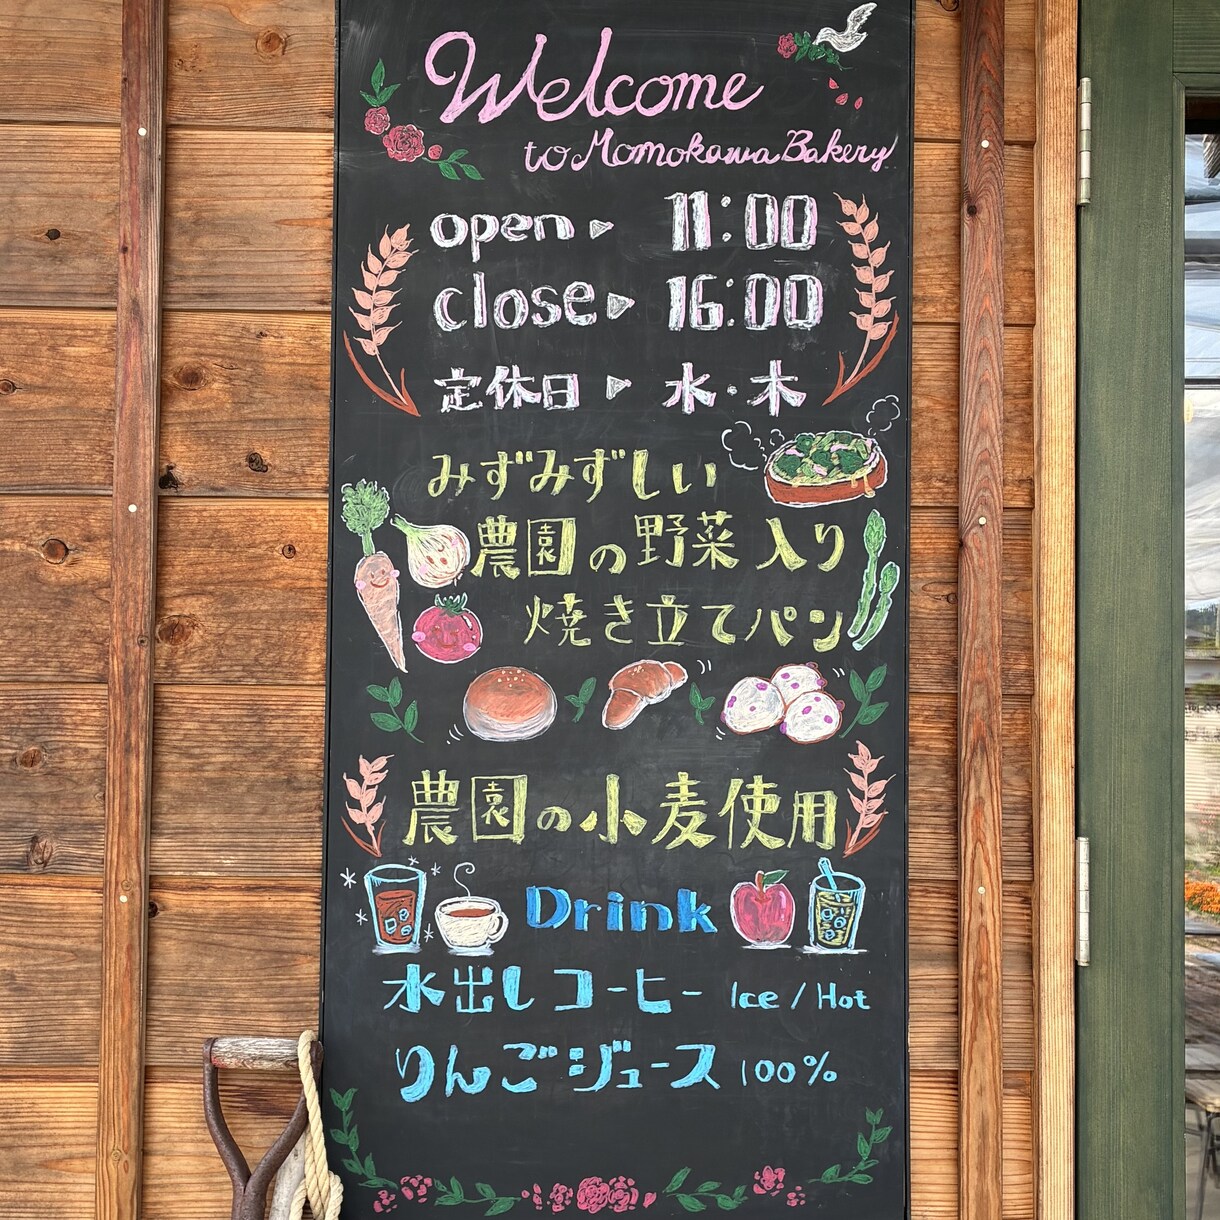 Welcome
to Momokawa Bakery
open ▷ 11:00
close ▷ 16:00
定休日 ▷ 水・木
みずみずしい
農園の野菜入り
焼き立てパン
農園の小麦使用
Drink
水出しコーヒー Ice / Hot
りんごジュース 100%